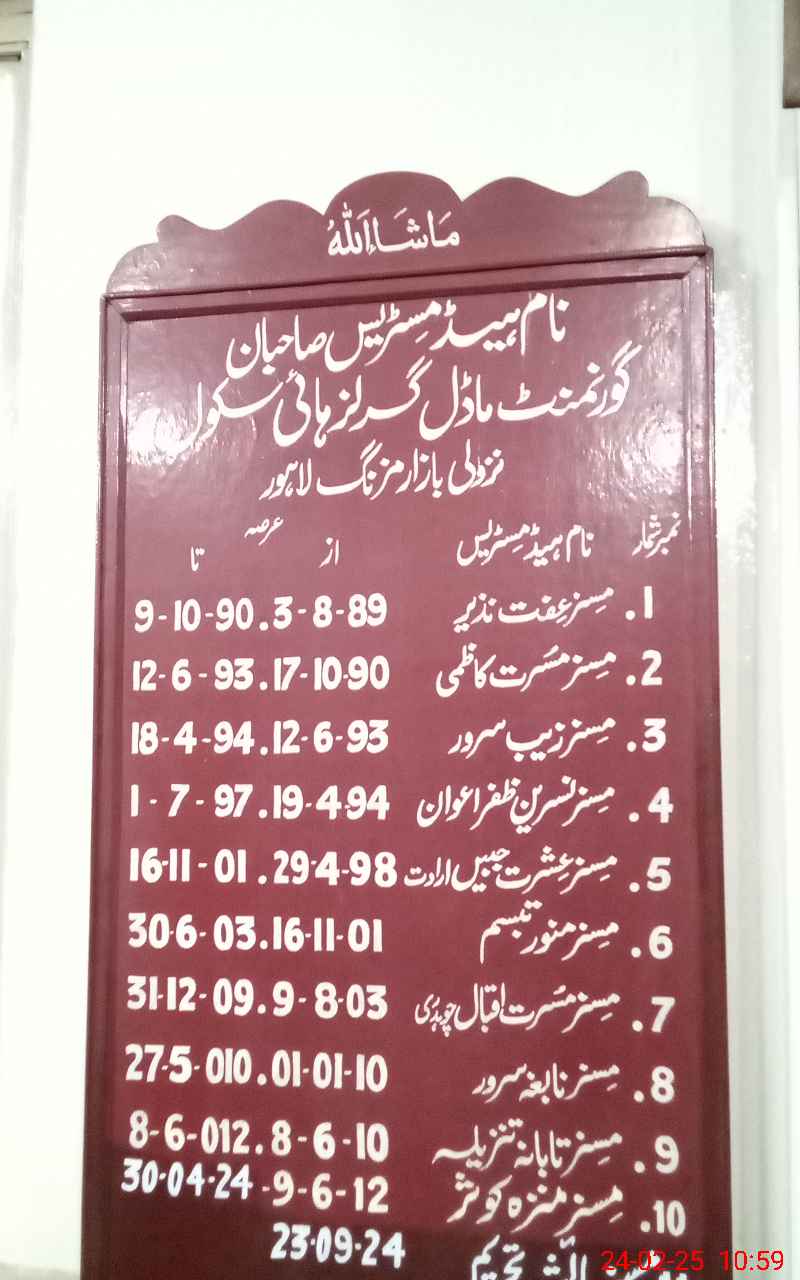 مَاشَاءَاللّٰہُ
نام ہیڈ مسٹریس صاحبان
گورنمنٹ ماڈل گرلز ہائی سکول
نزولی بازار مزنگ لاہور
نمبر شمار نام ہیڈ مسٹریس از عرصہ تا
1. مسز عفت نذیر 3-8-89. 9-10-90
2. مسز مسرت کاظمی 17-10-90. 12-6-93
3. مسز زیب سرور 12-6-93. 18-4-94
4. مسز نسرین ظفر اعوان 19-4-94. 1-7-97
5. مسز عشرت جبیں ارادت 29-4-98. 16-11-01
6. مسز منور تبسم 16-11-01. 30-6-03
7. مسز مسرت اقبال چوہدری 9-8-03. 31-12-09
8. مسز نابغہ سرور 01-01-10. 27-5-010
9. مسز تابانہ تنزیلہ 8-6-10. 8-6-012
10. مسز منزہ کوثر 9-6-12- 30-04-24
23-09-24
24-02-25 10:59